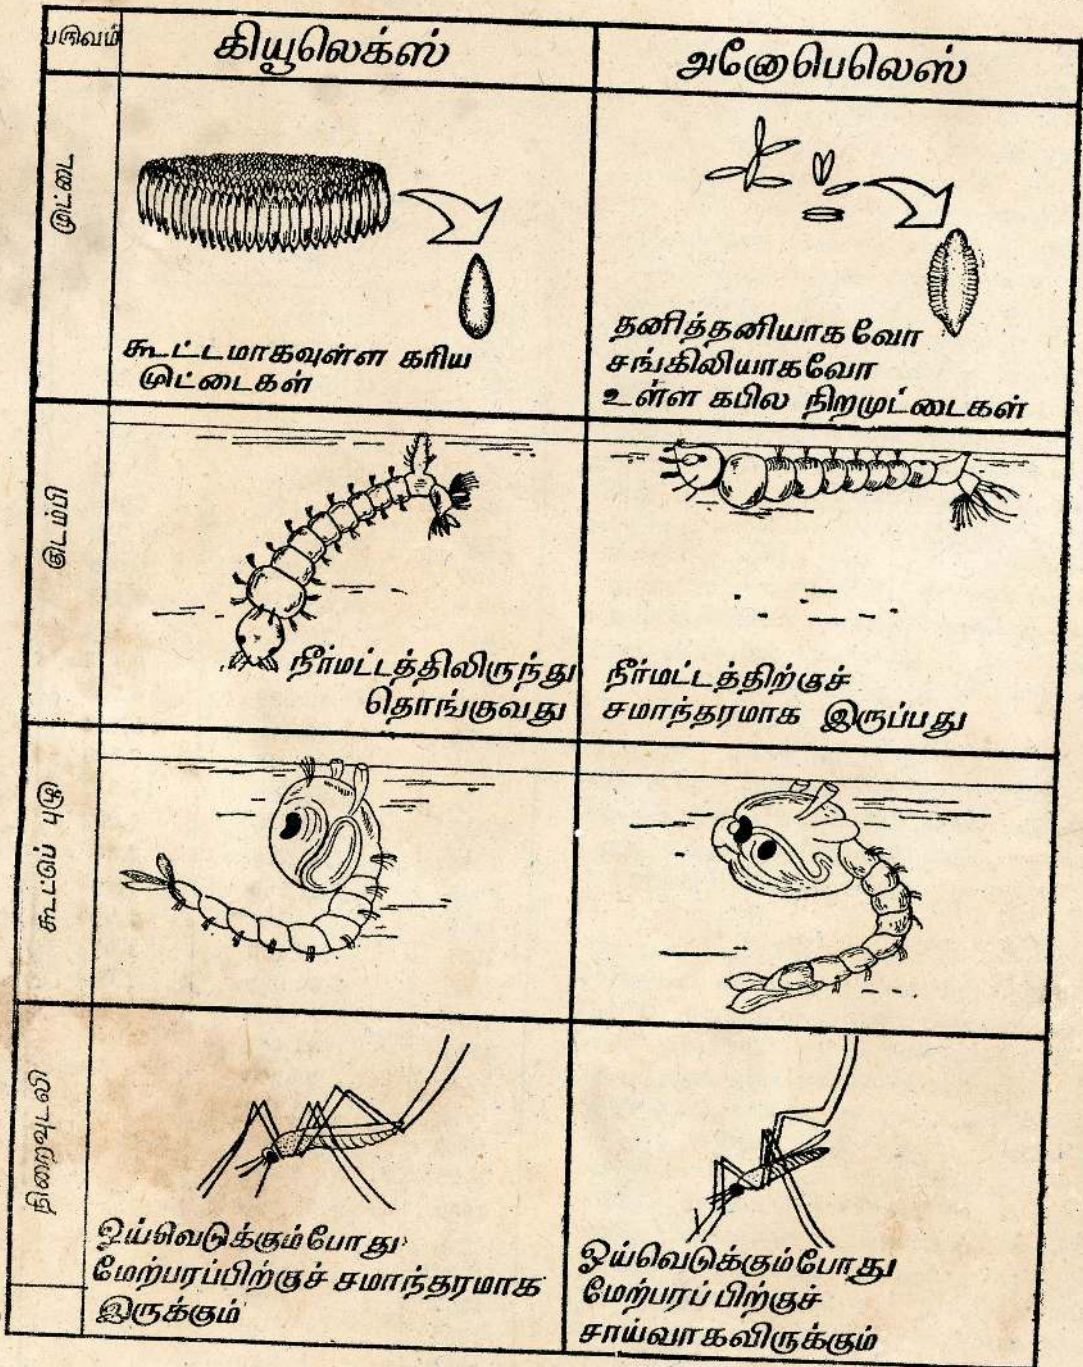 பருவம்
கியூலெக்ஸ்
அனோபெலெஸ்
முட்டை
கூட்டமாகவுள்ள கரிய
முட்டைகள்
தனித்தனியாகவோ
சங்கிலியாகவோ
உள்ள கபில நிறமுட்டைகள்
குடம்பி
நீர்மட்டத்திலிருந்து
தொங்குவது
நீர்மட்டத்திற்குச்
சமாந்தரமாக இருப்பது
கூட்டுப் புழு
நிறைவுடலி
ஓய்வெடுக்கும்போது
மேற்பரப்பிற்குச் சமாந்தரமாக
இருக்கும்
ஓய்வெடுக்கும்போது
மேற்பரப்பிற்குச்
சாய்வாகவிருக்கும்